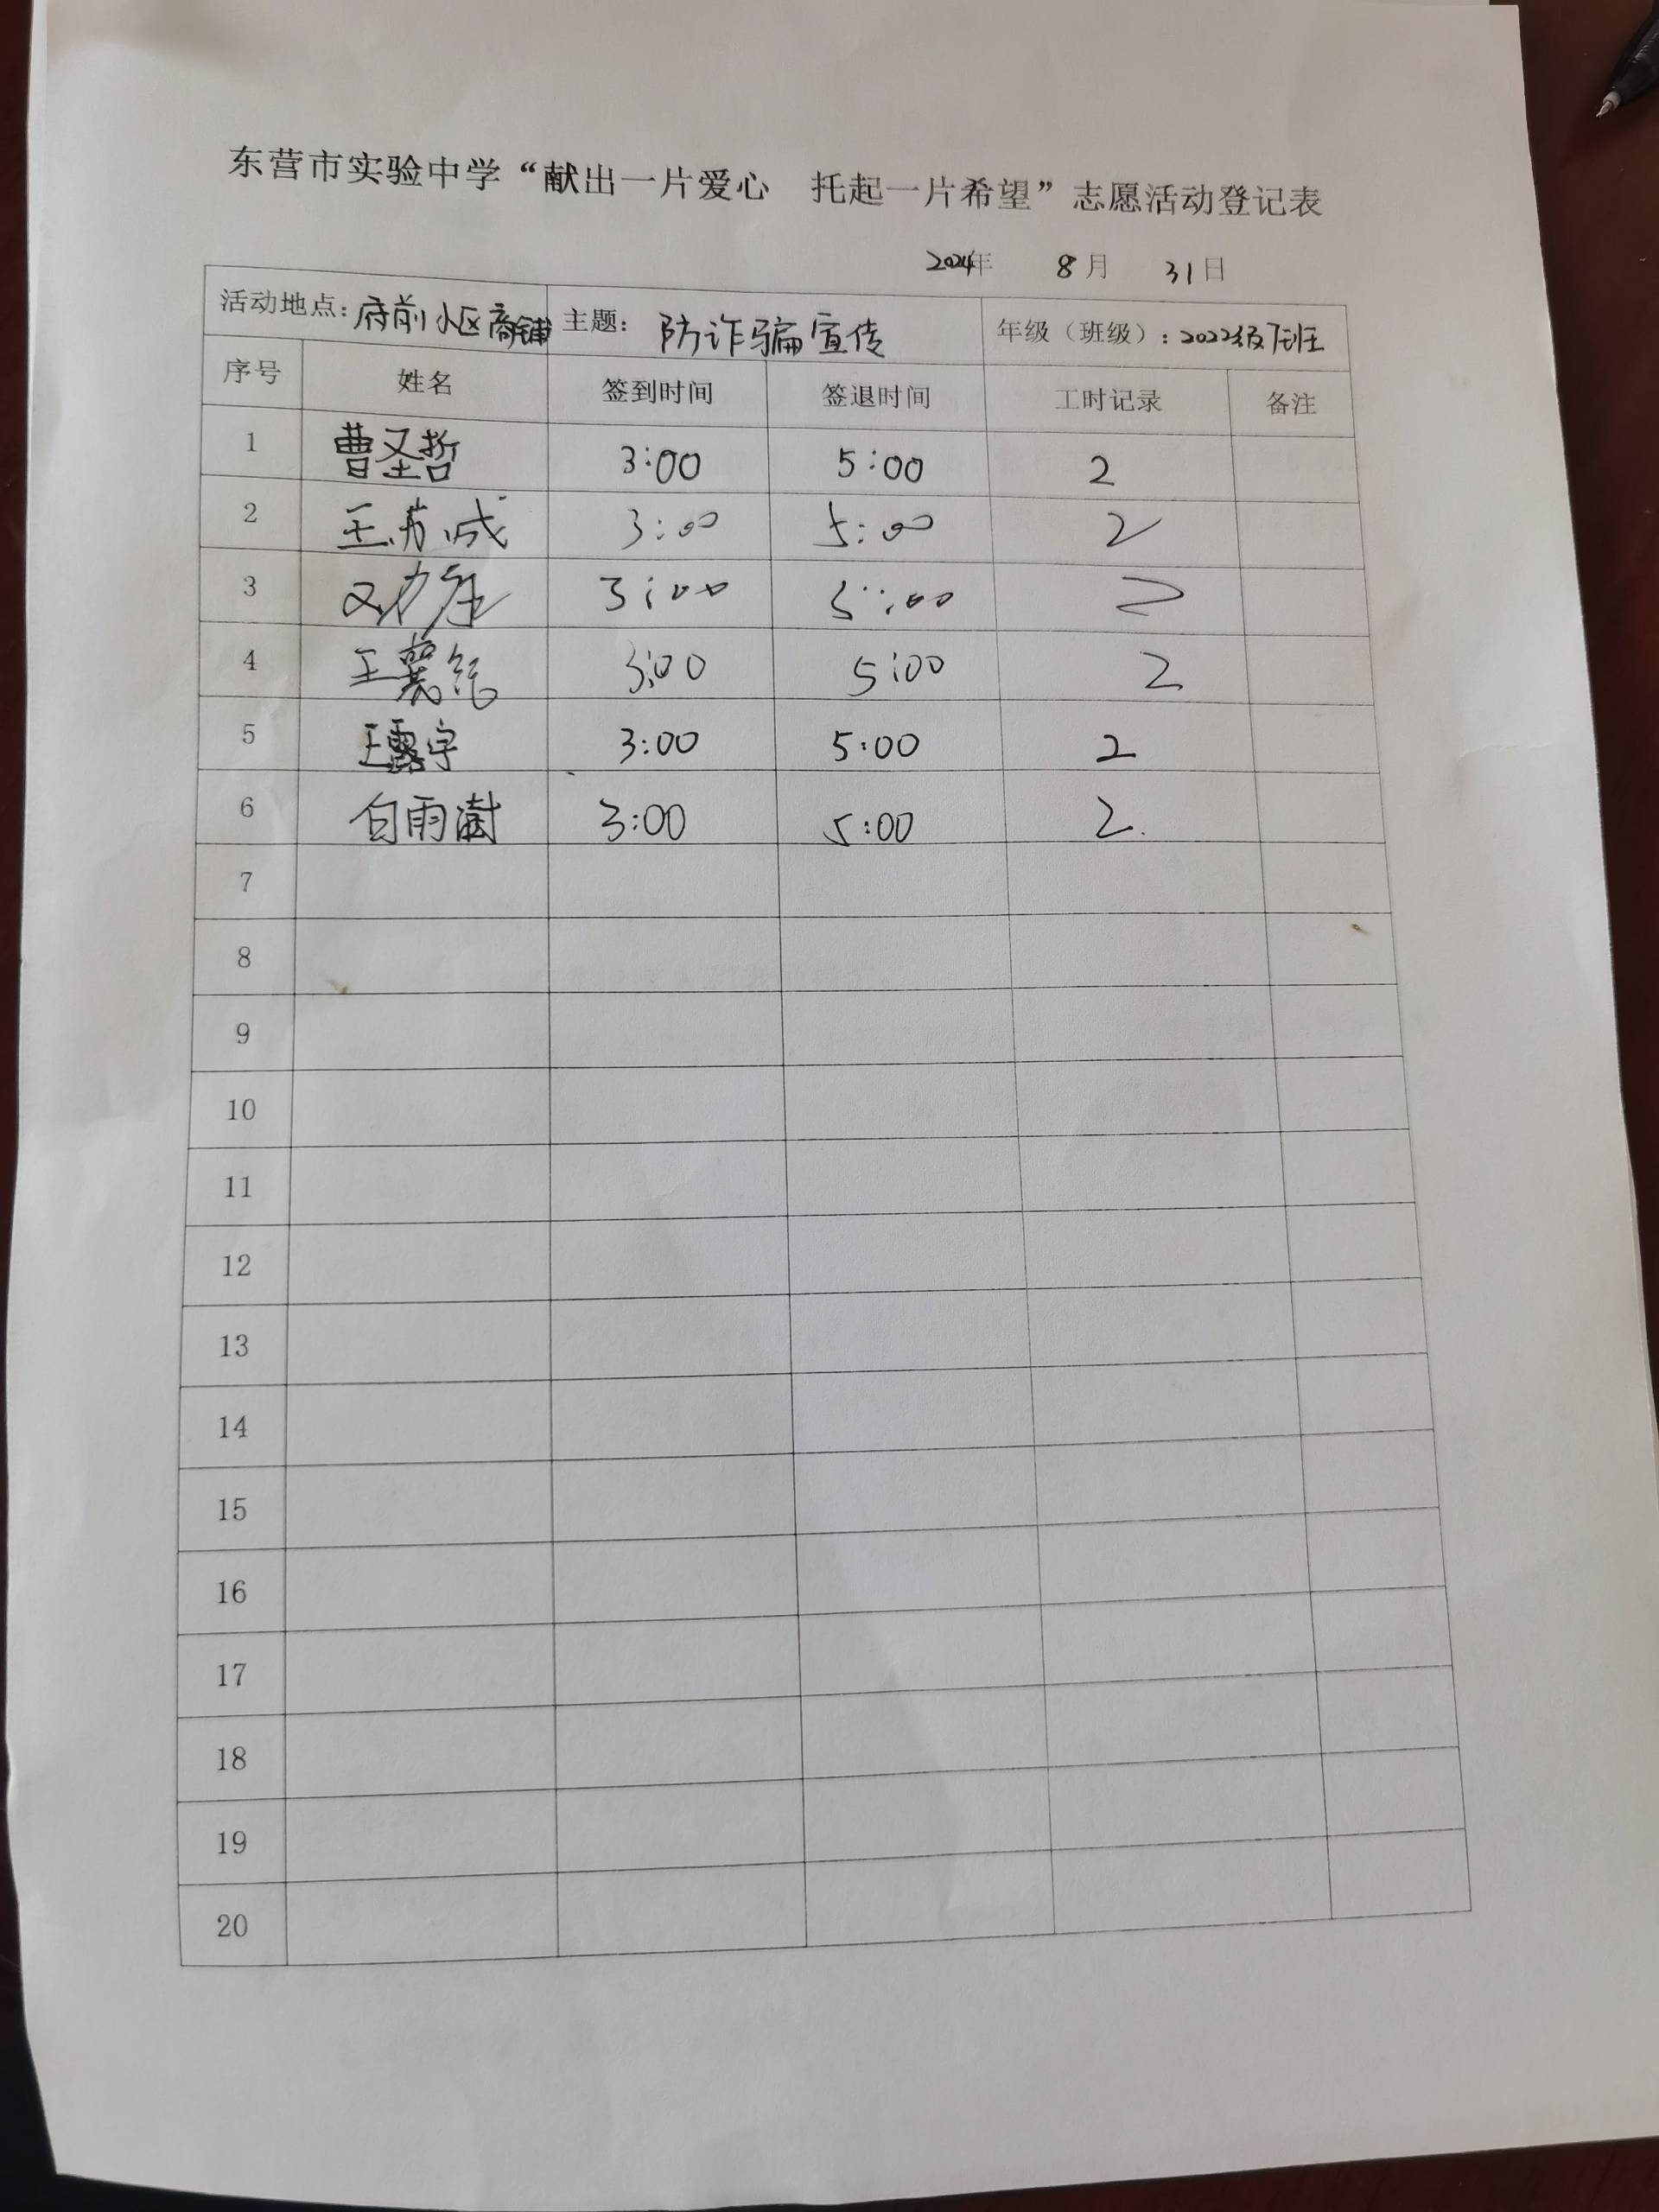 东营市实验中学“献出一片爱心 托起一片希望”志愿活动登记表
2024年 8月 31日
活动地点：府前小区商铺 主题：防诈骗宣传 年级（班级）：2022级7班
序号 姓名 签到时间 签退时间 工时记录 备注
1 曹圣哲 3:00 5:00 2
2 王苏成 3:00 5:00 2
3 3:00 5:00 2
4 王襄纭 3:00 5:00 2
5 王露宇 3:00 5:00 2
6 白雨澍 3:00 5:00 2.
7
8
9
10
11
12
13
14
15
16
17
18
19
20